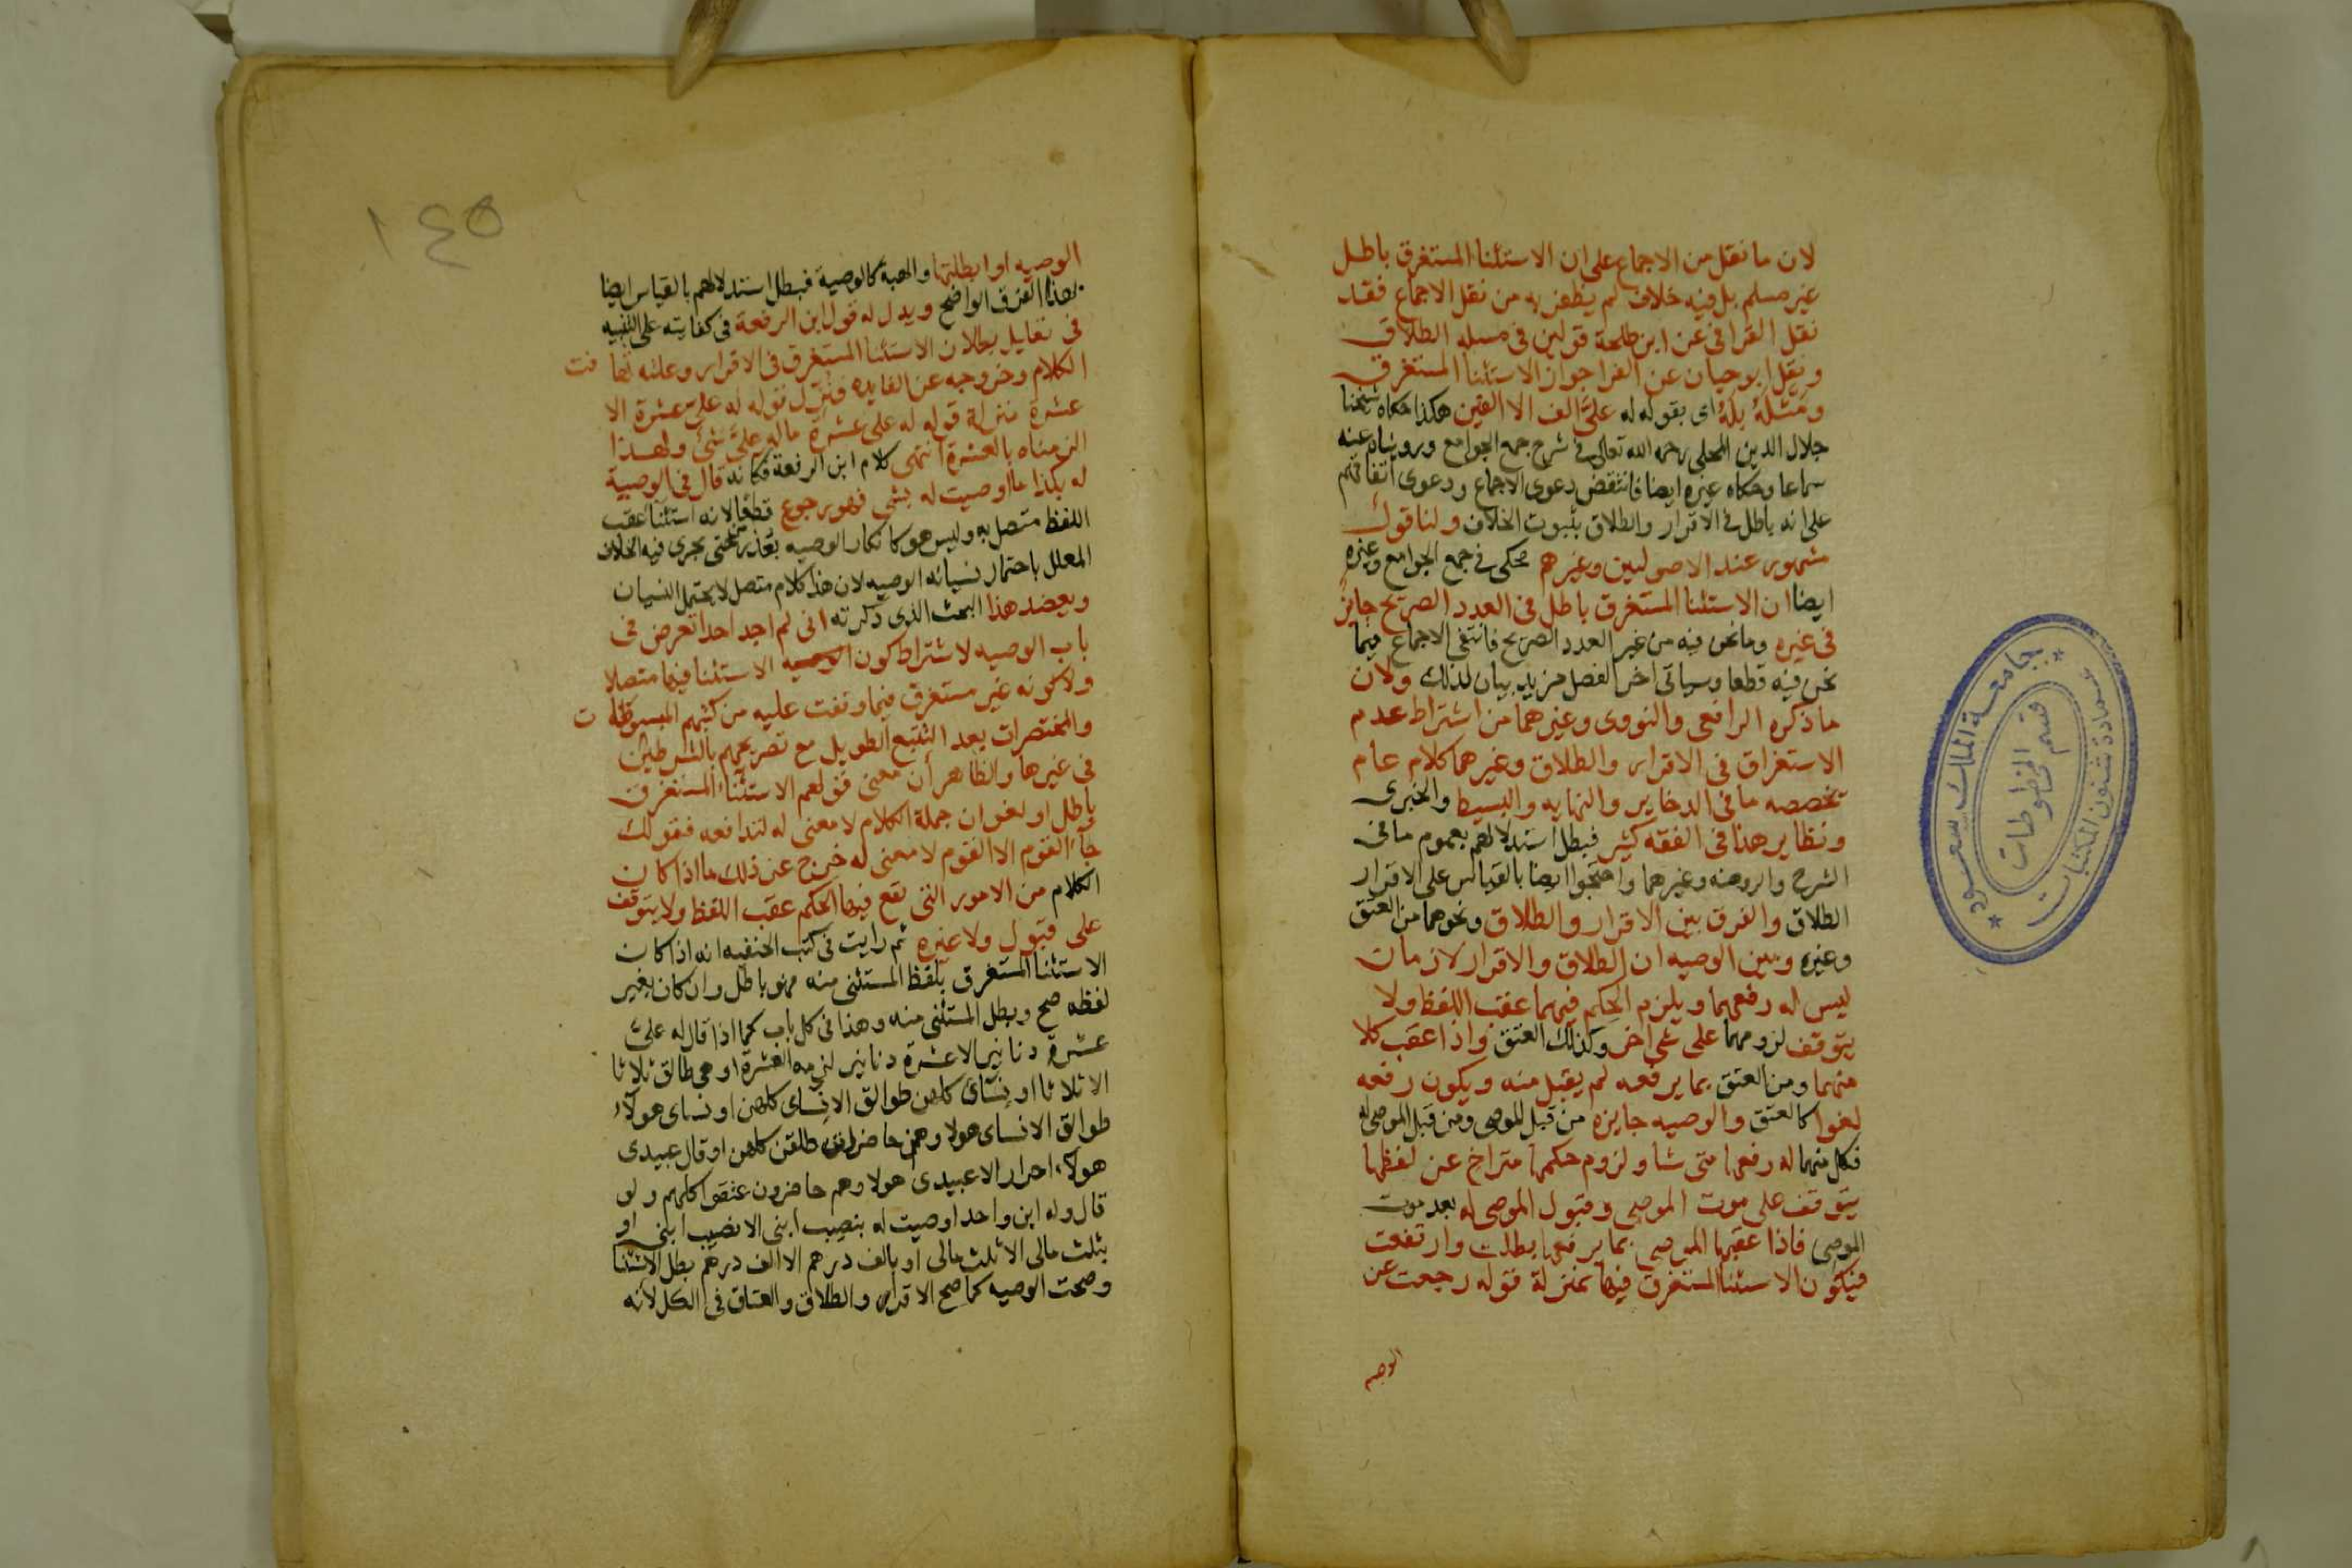 لان ما نقل من الاجماع على ان الاستثنا المستغرق باطل
غير مسلم بل فيه خلاف لم يظفر به من نقل الاجماع فقد
نقل القرافى عن ابن طلحة قولين فى مسله الطلاق
ونقل ابو حيان عن الفرا جواز الاستثنا المستغرق
ومثله بله اى بقوله له علىَّ الف الا الفين هكذا حكاه شيخنا
جلال الدين المحلى رحمه الله تعالى فى شرح جمع الجوامع ورويناه عنه
سماعا وحكاه غيره ايضا فانتقض دعوى الاجماع ودعوى اتفاقهم
على انه باطل فى الاقرار والطلاق بثبوت الخلاف ولنا قول
مشهور عند الاصوليين وغيرهم محكى فى جمع الجوامع وغيره
ايضا ان الاستثنا المستغرق باطل فى العدد الصريح جايز
فى غيره وما نحن فيه من غير العدد الصريح فانتفى الاجماع فيما
نحن فيه قطعا وسياتى اخر الفصل مزيد بيان لذلك ولان
ما ذكره الرافعى والنووى وغيرهما من اشتراط عدم
الاستغراق فى الاقرار والطلاق وغيرهما كلام عام
تخصصه ما فى الدخاير والنهايه والبسيط والخبرى
ونظاير هذا فى الفقه كثير فبطل استدلالهم بعموم ما فى
الشرح والروضه وغيرهما واحتجوا ايضا بالقياس على الاقرار
الطلاق والفرق بين الاقرار والطلاق ونحوهما من العتق
وغيره وبين الوصيه ان الطلاق والاقرار لازمان
ليس له رفعهما ويلزم الحكم فيهما عقب اللفظ ولا
يتوقف لزومهما على شى اخر وكذلك العتق واذا عقب كلا
منهما ومن العتق بما يرفعه لم يقبل منه ويكون رفعه
لغوا كالعتق والوصيه جايزه من قبل الموصى ومن قبل الموصى له
فكل منهما له رفعها متى شا ولزوم حكمها متراخ عن لفظها
يتوقف على موت الموصى وقبول الموصى له بعد موت
الموصى فاذا عقبها الموصى بما يرفعها بطلت وارتفعت
فيكون الاستثنا المستغرق فيها بمنزلة قوله رجعت عن
الوصيه
جامعة الملك سعود
عمادة شئون المكتبات
قسم المخطوطات
١٤٥
الوصيه او ابطلتها والهبة كالوصية فبطل استدلالهم بالقياس ايضا
بهذا الفرق الواضح ويدل له قول ابن الرفعة فى كفايته على التنبيه
فى تعليل بطلان الاستثنا المستغرق فى الاقرار وعلته تهافت
الكلام وخروجه عن الفايده ونزل قوله له علىّ عشرة الا
عشرة منزلة قوله له على عشرة ماله علىَّ شئ ولهذا
الزمناه بالعشرة انتهى كلام ابن الرفعة فكانه قال فى الوصية
له بكذا ما اوصيت له بشى فهو رجوع قطعا لانه استثنا عقب
اللفظ متصل به وليس هو كانكار الوصيه بعد حتى يجرى فيه الخلاف
المعلل باحتمال نسيانه الوصيه لان هذا كلام متصل لا يحتمل النسيان
ويعضد هذا البحث الذى ذكرته انى لم اجد احدا تعرض فى
باب الوصيه لاشتراط كون الاستثنا فيها متصلا
ولا كونه غير مستغرق فيما وقفت عليه من كتبهم المبسوطات
والمختصرات بعد التتبع الطويل مع تصريحهم بالشرطين
فى غيرها والظاهر أن معنى قولهم الاستثناء المستغرق
باطل او لغو ان جملة الكلام لا معنى له لتدافعه فقولك
جآء القوم الا القوم لا معنى له خرج عن ذلك ما اذا كان
الكلام من الامور التى تقع فيها الحكم عقب اللفظ ولا يتوقف
على قبول ولا غيره ثم رايت فى كتب الحنفيه انه اذا كان
الاستثنا المستغرق بلفظ المستثنى منه فهو باطل وان كان بغير
لفظه صح وبطل المستثنى منه وهذا فى كل باب كما اذا قال له علىَّ
عشرة دنانير الا عشرة دنانير لزمه العشرة او هى طالق ثلاثا
الا ثلاثا او نساى كلهن طوالق الا نساى كلهن او نساى هولآء
طوالق الا نساى هولا وهن حاضرات طلقن كلهن او قال عبيدى
هولاء احرار الا عبيدى هولا وهم حاضرون عتقوا كلهم ولو
قال وله ابن واحد اوصيت له بنصيب ابنى الا نصيب ابنى او
بثلث مالى الا ثلث مالى او بالف درهم الا الف درهم بطل الاستثنا
وصحت الوصيه كما صح الاقرار والطلاق والعتاق فى الكل لأنه